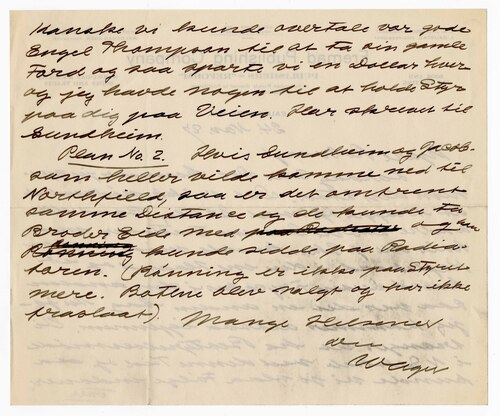 Kanske vi kunde overtale vor gode
Engel Thompson til at ta sin gamle
Ford og saa gav vi ham Dollar hver
og jeg havde nogen til at holde Styr
paa dig paa Veien. Har skrevet til
Sundheim.
Plan No. 2. Hvis Sundheim og Jacob-
sen heller vilde komme ned til
Northfield, saa er det omtrent
samme Distance og de kunde ta
Broder Eide med og
Rønning kunde sidde paa Radia-
toren. (Rønning er ikke paa Styret
mere. Botne blev valgt og har ikke
)
Mange Hilsener
din